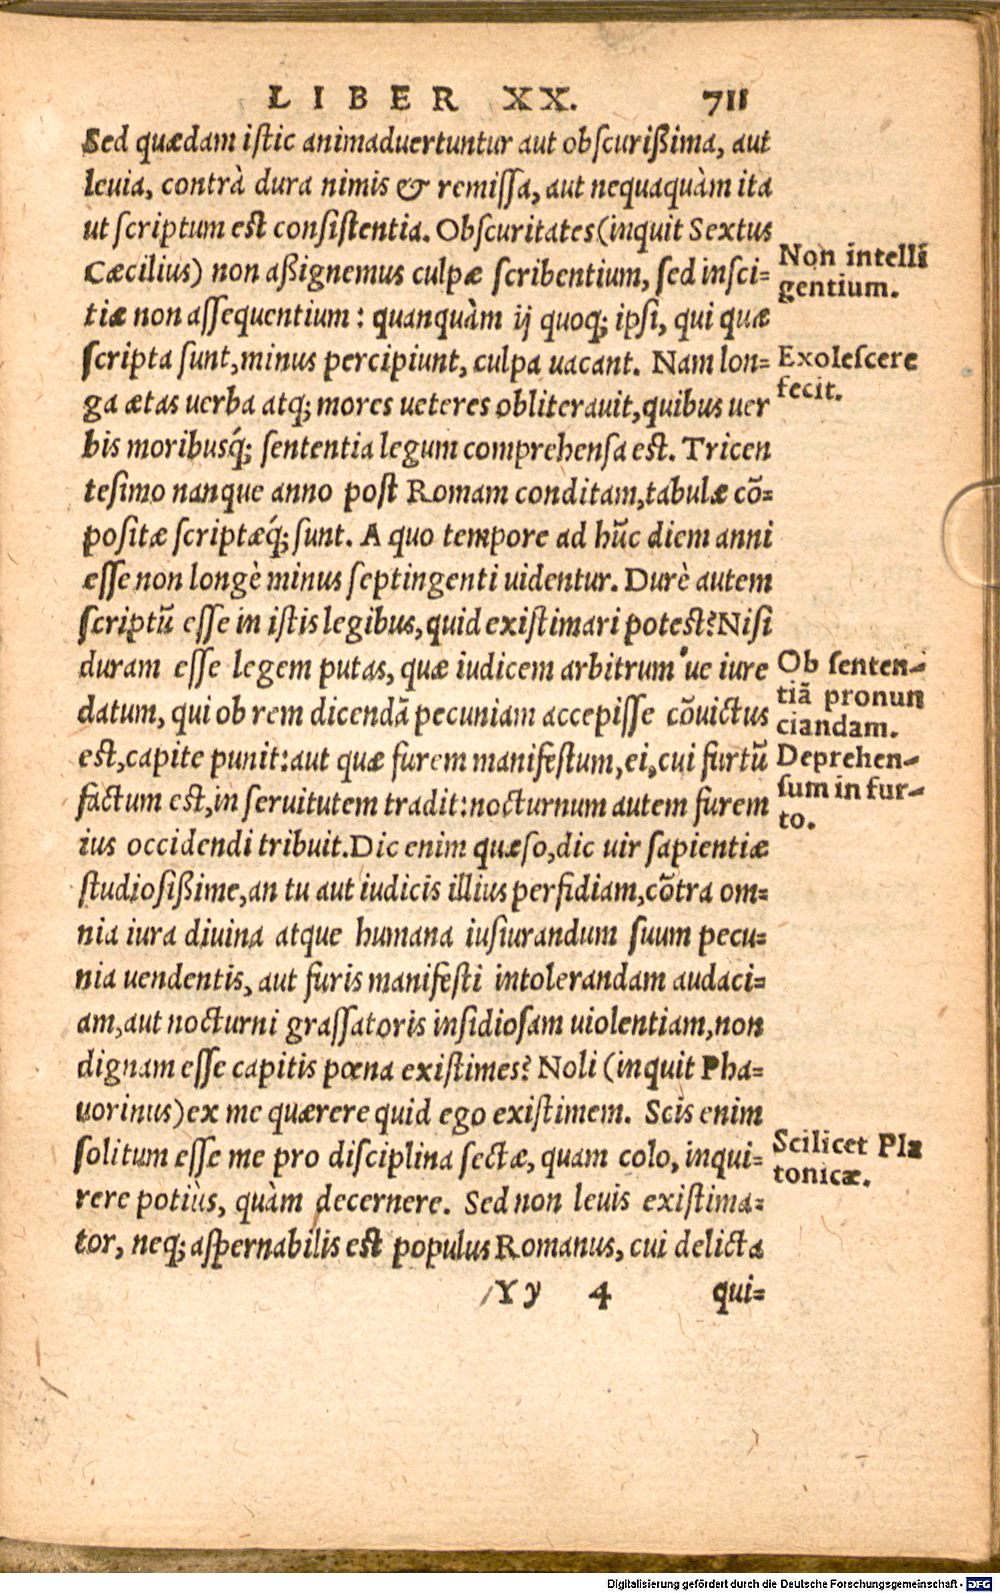 LIBER XX. 711
Sed quædam istic animaduertuntur aut obscurißima, aut
leuia, contrà dura nimis & remissa, aut nequaquàm ita
ut scriptum est consistentia. Obscuritates (inquit Sextus
Cæcilius) non aßignemus culpæ scribentium, sed insci=
tiæ non assequentium: quanquàm ij quoq; ipsi, qui quæ
scripta sunt, minus percipiunt, culpa uacant. Nam lon=
ga ætas uerba atq; mores ueteres obliterauit, quibus uer
bis moribusq́; sententia legum comprehensa est. Tricen
tesimo nanque anno post Romam conditam, tabulæ cõ=
positæ scriptæq́; sunt. A quo tempore ad hũc diem anni
esse non longè minus septingenti uidentur. Durè autem
scriptũ esse in istis legibus, quid existimari potest? Nisi
duram esse legem putas, quæ iudicem arbitrum'ue iure
datum, qui ob rem dicendã pecuniam accepisse cõuictus
est, capite punit: aut quæ furem manifestum, ei, cui furtũ
factum est, in seruitutem tradit: nocturnum autem furem
ius occidendi tribuit. Dic enim quæso, dic uir sapientiæ
studiosißime, an tu aut iudicis illius perfidiam, cõtra om=
nia iura diuina atque humana iusiurandum suum pecu=
nia uendentis, aut furis manifesti intolerandam audaci=
am, aut nocturni grassatoris insidiosam uiolentiam, non
dignam esse capitis pœna existimes? Noli (inquit Pha=
uorinus) ex me quærere quid ego existimem. Scis enim
solitum esse me pro disciplina sectæ, quam colo, inqui=
rere potiùs, quàm decernere. Sed non leuis existima=
tor, neq; aspernabilis est populus Romanus, cui delicta
Yy 4 qui=
Non intelli
gentium.
Exolescere
fecit.
Ob senten-
tiã pronun
ciandam.
Deprehen-
sum in fur-
to.
Scilicet Pla
tonicæ.
Digitalisierung gefördert durch die Deutsche Forschungsgemeinschaft - DFG